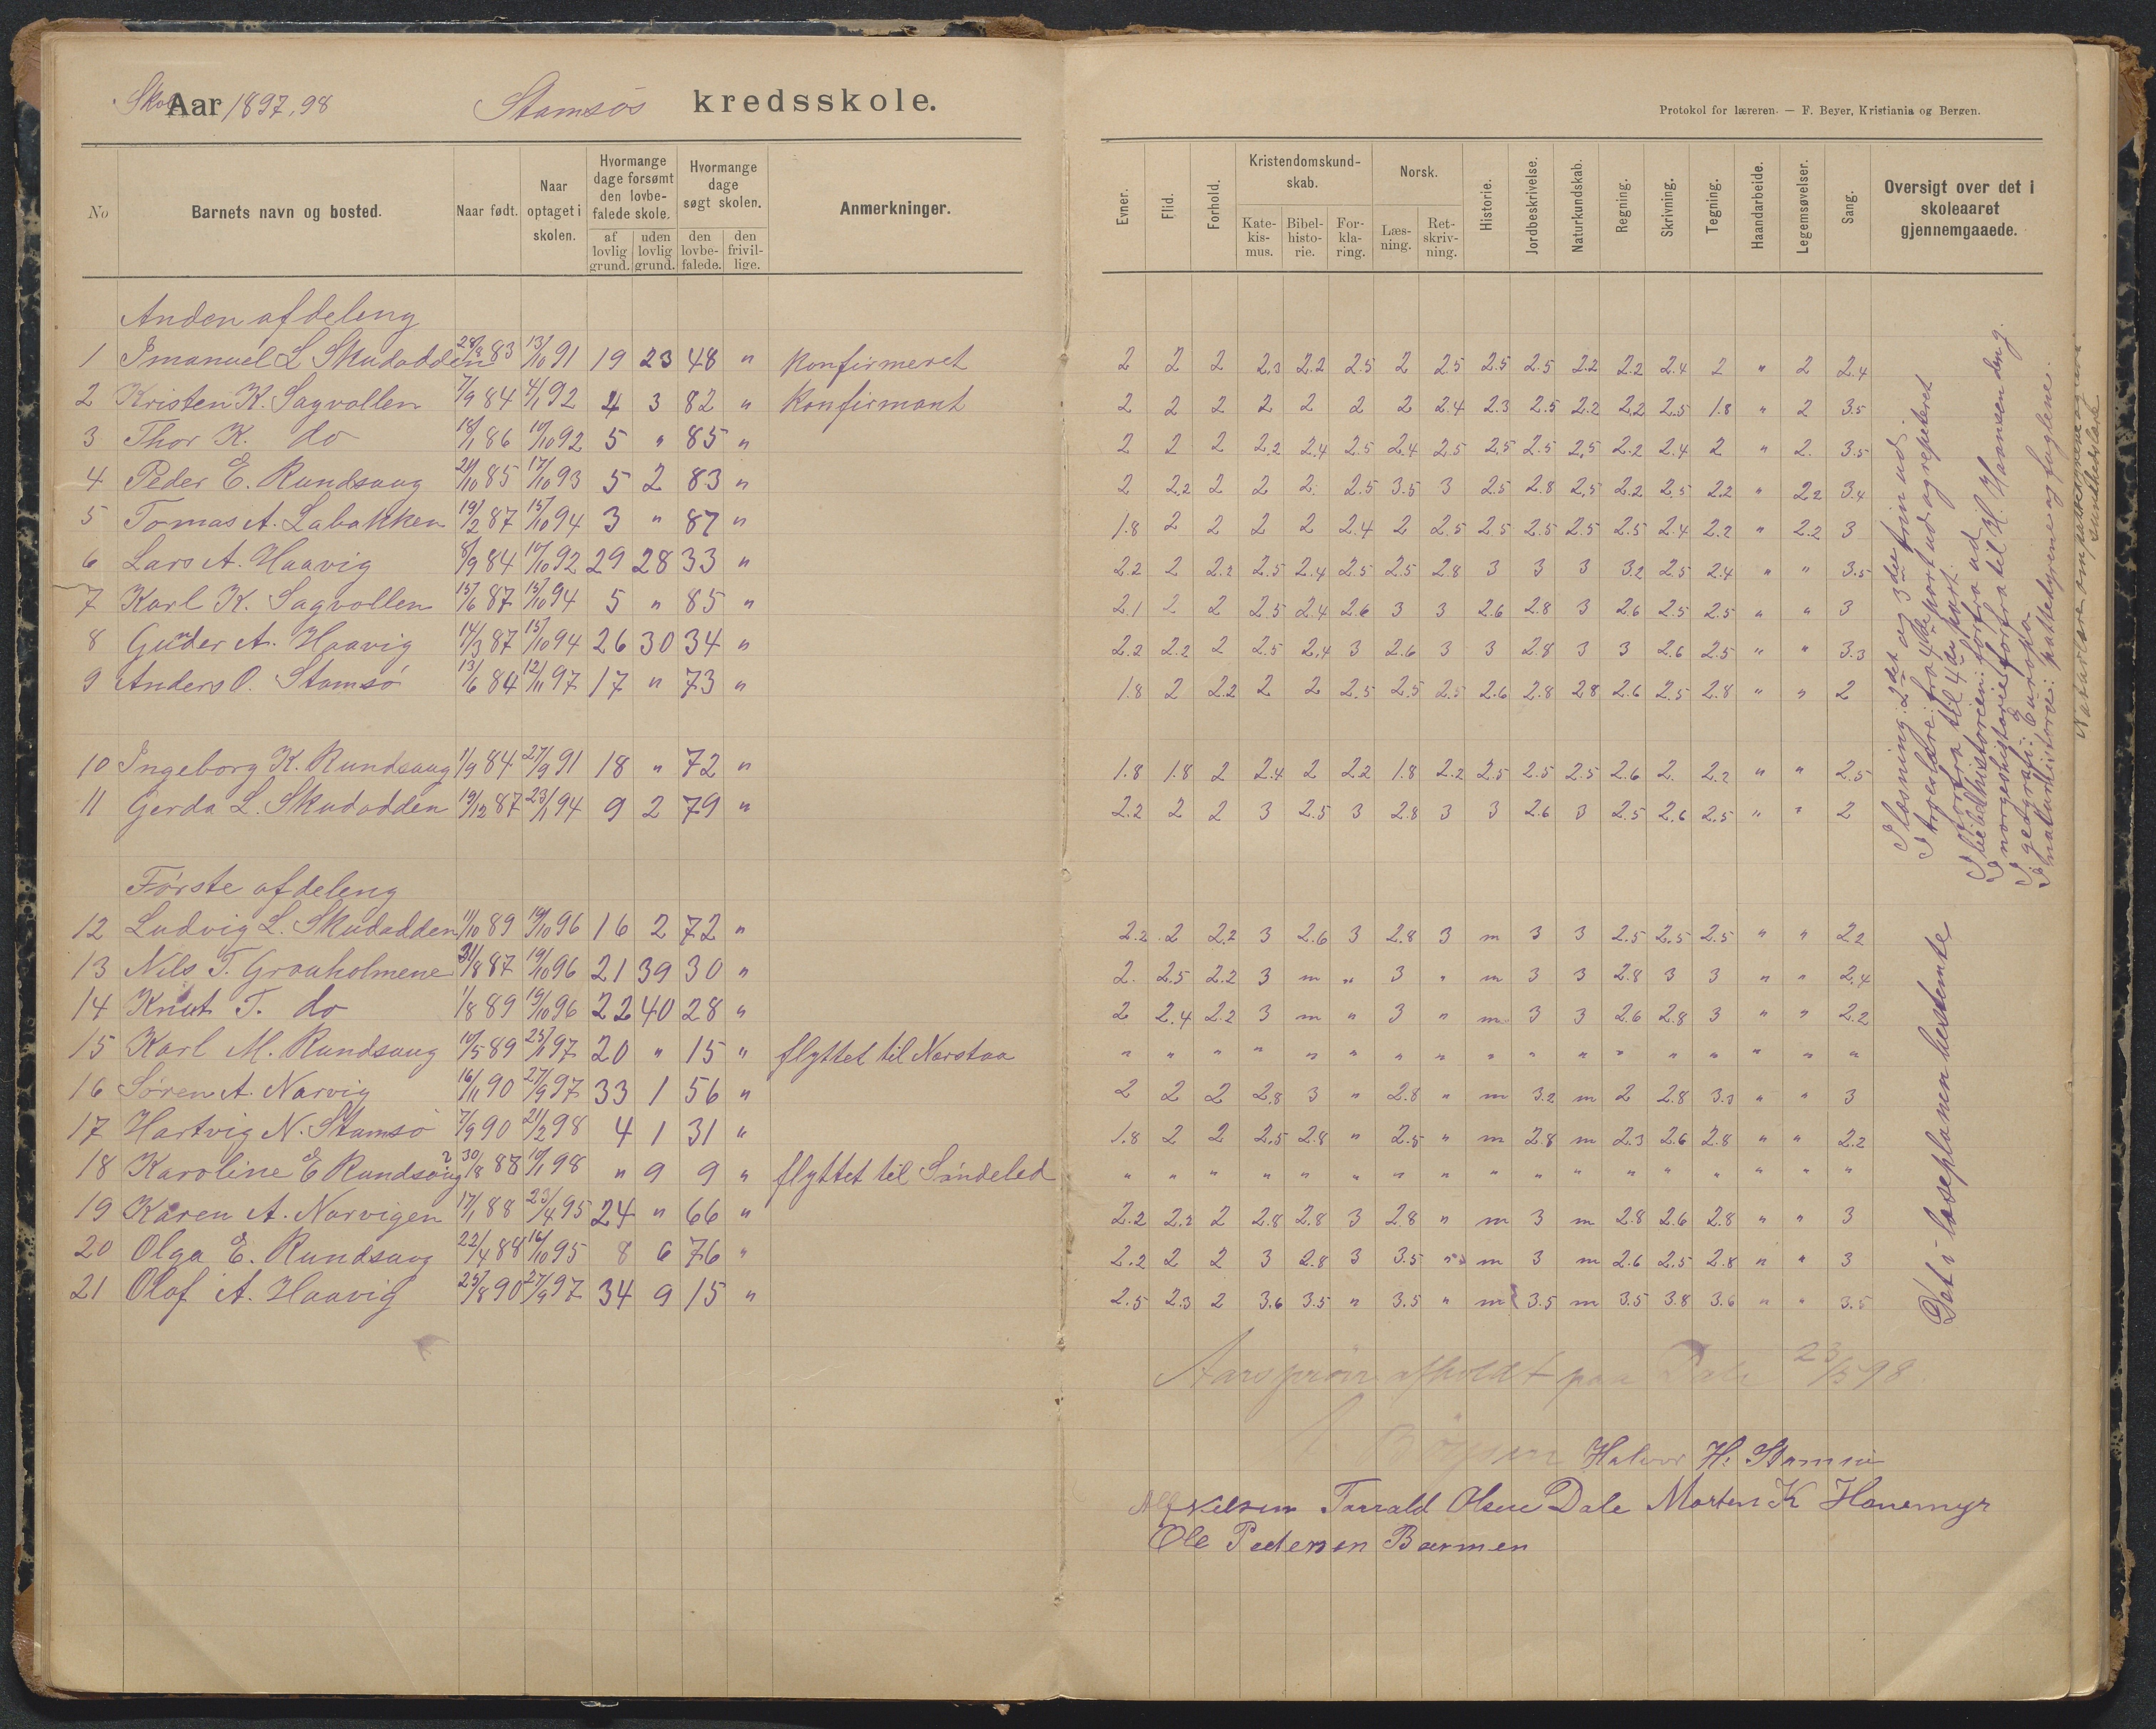 Skole Aar 1897,98 Stamsøs kredsskole.
Protokol for læreren. — F. Beyer, Kristiania og Bergen.
No
Barnets navn og bosted.
Naar født.
Naar optaget i skolen.
Hvormange dage forsømt den lovbefalede skole.
af lovlig grund.
uden lovlig grund.
Hvormange dage søgt skolen.
den lovbefalede.
den frivillige.
Anmerkninger.
Evner.
Flid.
Forhold.
Kristendomskundskab.
Katekismus.
Bibelhistorie.
Forklaring.
Norsk.
Læsning.
Retskrivning.
Historie.
Jordbeskrivelse.
Naturkundskab.
Regning.
Skrivning.
Tegning.
Haandarbeide.
Legemsøvelser.
Sang.
Oversigt over det i skoleaaret gjennemgaaede.
Anden afdeling
1 Imanuel L Skudodden 28/9 83 13/10 91 19 23 48 " Konfirmeret 2 2 2 2.3 2.2 2.5 2 2.5 2.5 2.5 2.2 2.2 2.4 2 " 2 2.4
2 Kristen K. Sagvollen 7/9 84 4/1 92 4 3 82 " Konfirmant 2 2 2 2 2 2 2 2.4 2.3 2.5 2.2 2.2 2.5 1.8 " 2 3.5
3 Thor K. do 18/1 86 10/10 92 5 " 85 " 2 2 2 2.2 2.4 2.5 2.4 2.5 2.5 2.5 2.5 2.2 2.4 2 " 2. 3.5
4 Peder E. Rundsaug 21/10 85 17/10 93 5 2 83 " 2 2.2 2 2 2. 2.5 3.5 3 2.5 2.8 2.5 2.2 2.5 2.2 " 2.2 3.4
5 Tomas A. Labakken 19/2 87 15/10 94 3 " 87 " 1.8 2 2 2 2 2.4 2 2.5 2.5 2.5 2.5 2.5 2.4 2.2 " 2.2 3
6 Lars A. Haavig 8/9 84 10/10 92 29 28 33 " 2.2 2 2.2 2.5 2.4 2.5 2.5 2.8 3 3 3 3.2 2.5 2.4 " " 3.5
7 Karl K. Sagvollen 15/6 87 15/10 94 5 " 85 " 2.1 2 2 2.5 2.4 2.6 3 3 2.6 2.8 3 2.6 2.5 2.5 " " 3
8 Gunder A. Haavig 14/3 87 15/10 94 26 30 34 " 2.2 2.2 2 2.5 2.4 3 2.6 3 3 2.8 3 3 2.6 2.5 " " 3.3
9 Anders O. Stamsø 13/6 84 12/11 97 17 " 73 " 1.8 2 2.2 2 2 2.5 2.5 2.5 2.6 2.8 2.8 2.6 2.5 2.8 " " 2
10 Ingeborg K. Rundsaug 1/9 84 27/9 91 18 " 72 " 1.8 1.8 2 2.4 2 2.2 1.8 2.2 2.5 2.5 2.5 2.6 2. 2.2 " " 2.5
11 Gerda L. Skudodden 19/12 87 23/1 94 9 2 79 " 2.2 2 2 3 2.5 3 2.8 3 3 2.6 3 2.5 2.6 2.5 " " 2
Første afdeling
12 Ludvig L. Skudodden 11/10 89 19/10 96 16 2 72 " 2.2 2 2.2 3 2.6 3 2.8 3 m 3 3 2.5 2.5 2.5 " " 2.2
13 Nils T. Groaholmene 21/8 87 19/10 96 21 39 30 " 2. 2.5 2.2 3 m " 3 " m 3 3 2.8 3 3 " " 2.4
14 Knut T. do 1/8 89 19/10 96 22 40 28 " 2 2.4 2.2 3 m " 3 " m 3 3 2.6 2.8 3 " " 2.2
15 Karl M. Rundsaug 10/5 89 25/11 97 20 " 15 " flyttet til Narstaa " " " " " " " " " " " " " " " " "
16 Søren A. Narvig 16/11 90 27/9 97 33 1 56 " 2 2 2 2.8 3 " 2.8 " m 3.2 m 2 2.8 3.3 " " 3
17 Hartvig N. Stamsø 7/9 90 21/2 98 4 1 31 " 1.8 2 2 2.5 2.8 " 2.5 " m 2.8 m 2.3 2.6 2.8 " " 2.2
18 Karoline E Rundsaug 30/8 88 10/1 98 " 9 9 " flyttet til Søndeled " " " " " " " " " " " " " " " " "
19 Karen A. Narvigen 17/1 88 23/4 95 24 " 66 " 2.2 2.2 2 2.8 2.8 3 2.8 " m 3 m 2.8 2.6 2.8 " " 3
20 Olga E. Rundsaug 22/4 88 16/10 95 8 6 76 " 2.2 2 2 3 2.8 3 3.5 " m 3 m 2.6 2.5 2.8 " " 3
21 Olaf A. Haavig 25/8 90 27/9 97 34 9 15 " 2.5 2.3 2 3.6 3.5 " 3.5 " m 3.5 m 3.5 3.8 3.6 " " 3.5
I læsning: 2det og 3die trin ud.
I troeslære: fra 4de part ud og repeteret
forfra til 4de part.
I bibelhistorien: forfra ud
I norgeshistorie forfra til H. Haansen deng.
I geografi: Europa.
I naturhistorie: pattedyrene og fuglene.
Naturlære om
sundhedslære
Det i læseplanen bestemte
Aarsprøve afholdt paa Dale 23/5 98
Halvor H. Stamsø
Tarrald Olsen Dale Morten K Hanemyr
Ole Pedersen Barmen